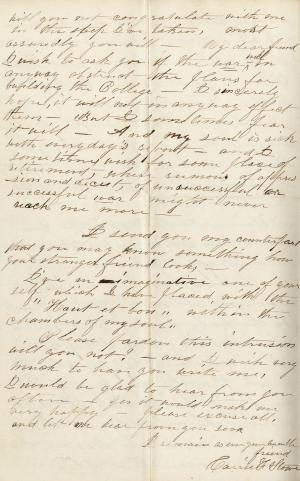 will you not congratulate with me
in the step I've taken, most
assuredly you will — My dear friend
I wish to ask you if the war will
anyway obstruct the plans for
building the College — I sincerely
hope, it will not in any way effect
them — But I sometimes fear
it will — And my soul is sick
with every day's report — and I
sometimes wish for some place of
retirement, where rumors of oppres
sion and deceit, of unsuccessful or
successful war might never
reach me more —
I send you my counterfeit
that you may know something how
your stranger friend looks —
I've an imaginative one of your
self which I have placed, with the
"Haut et bon" within the
chambers of my soul.
Please pardon this intrusion
will you not? — and I wish very
much to have you write me,
I would be glad to hear from you
often — yes it would make me
very happy — please excuse all,
and let me hear from you soon
I remain as ever your
friend
Carrie F. Stowe